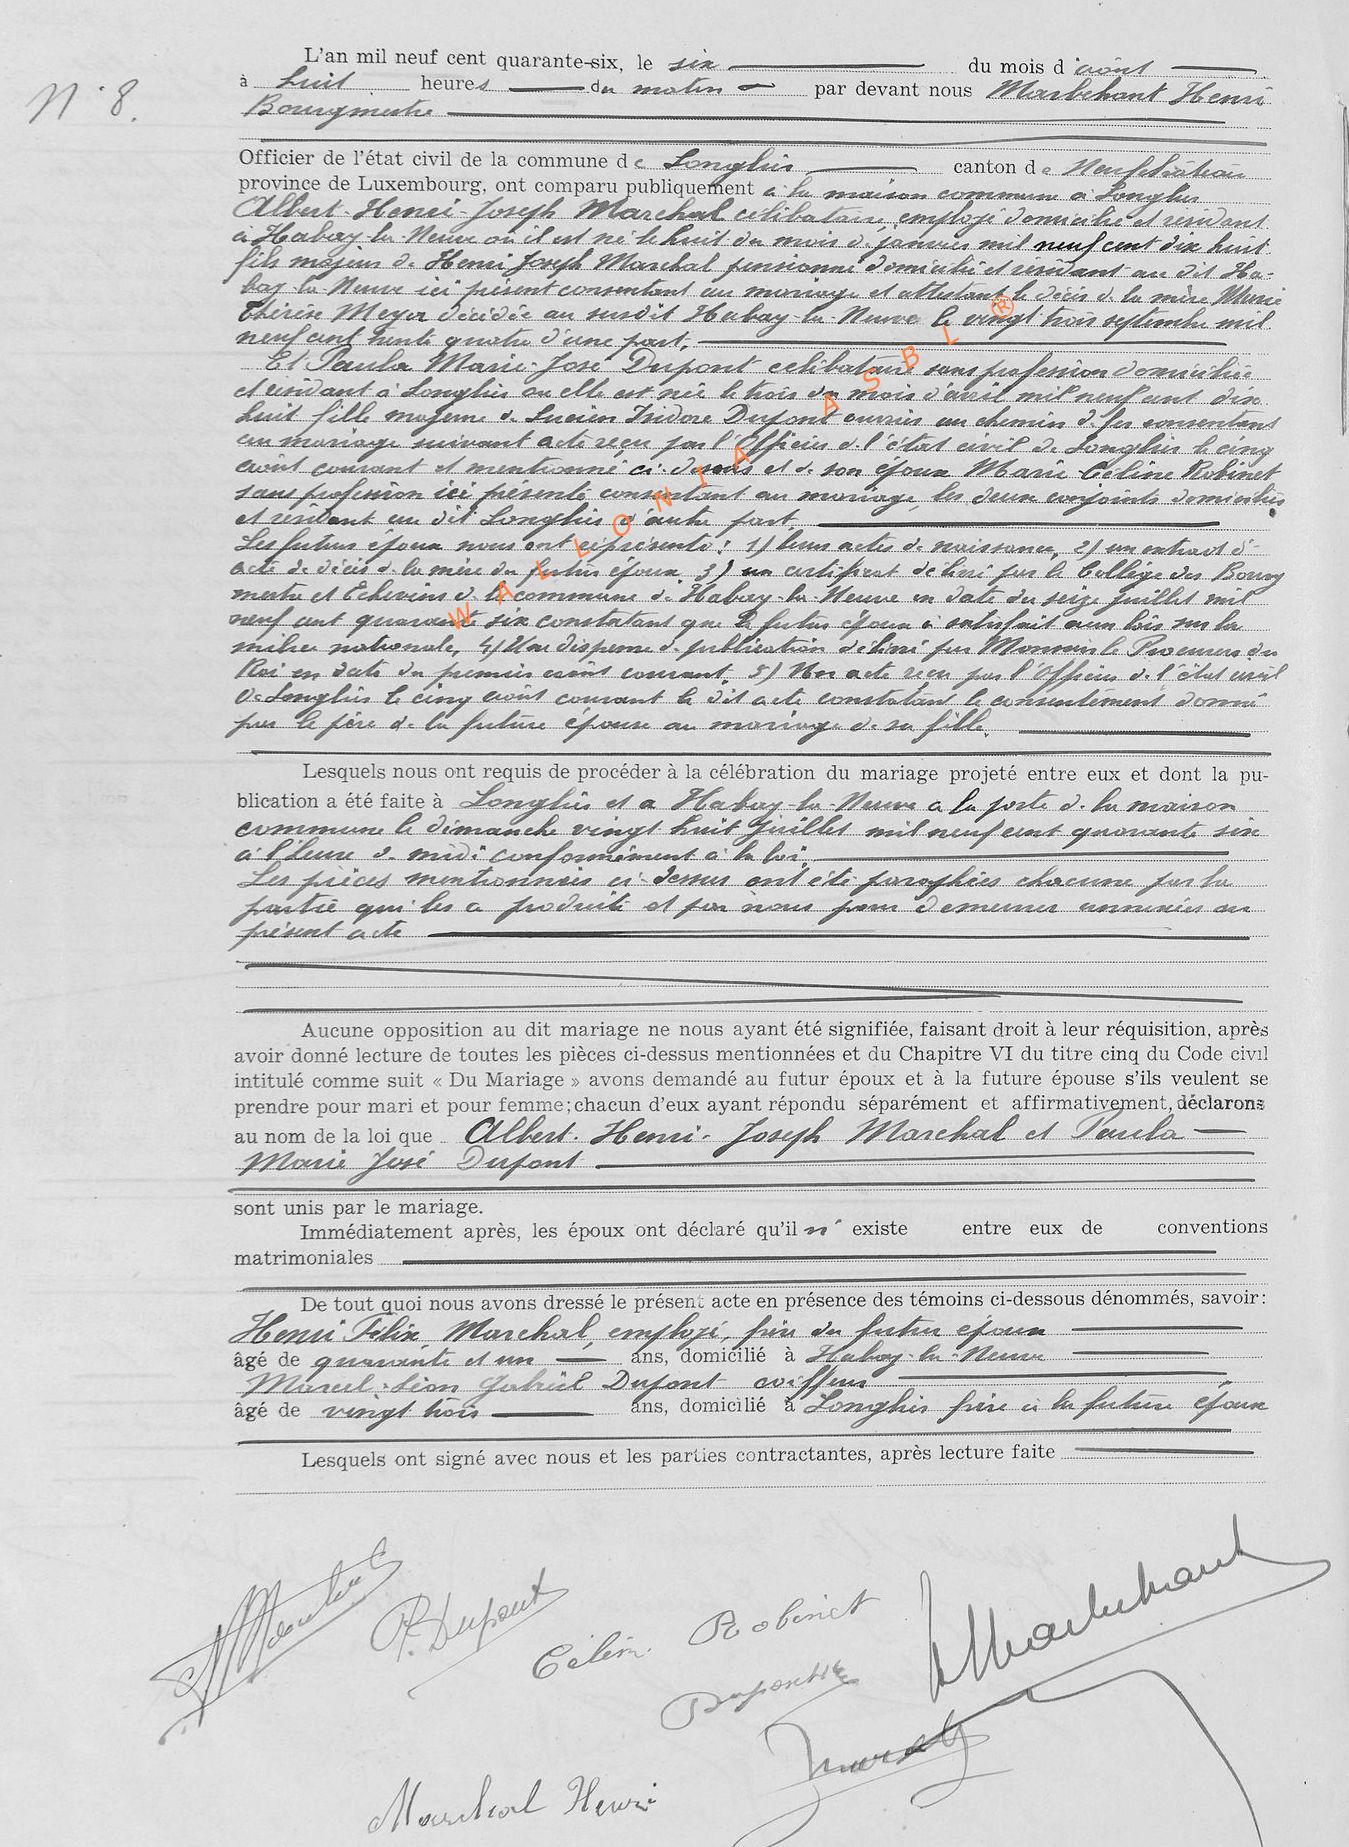 N° 8.
L'an mil neuf cent quarante-six, le six du mois d'août
à huit heures du matin par devant nous Marbehant Henri
Bourgmestre
Officier de l'état civil de la commune de Longlier canton de Neufchâteau
province de Luxembourg, ont comparu publiquement à la maison commune à Longlier
Albert-Henri-Joseph Marchal célibataire, employé domicilié et résidant
à Habay-la-Neuve où il est né le huit du mois de janvier mil neuf cent dix huit
fils majeur de Henri Joseph Marchal pensionné domicilié et résidant au dit Ha-
bay la Neuve ici présent consentant au mariage et attestant le décès de la mère Marie
Thérèse Meyer décédée au susdit Habay-la-Neuve le vingt trois septembre mil
neuf cent trente quatre d'une part.
Et Paula Marie-José Dupont célibataire sans profession domiciliée
et résidant à Longlier où elle est née le trois du mois d'avril mil neuf cent dix
huit fille majeure de Lucien Isidore Dupont ouvrier au chemin de fer consentant
au mariage suivant acte reçu par l'Officier de l'état civil de Longlier le cinq
août courant et mentionné ci-dessus et de son épouse Marie Céline Robinet
sans profession ici présente consentant au mariage, les deux conjoints domiciliés
et résidant au dit Longlier d'autre part.
Les futurs époux nous ont représenté: 1) leurs actes de naissance, 2) un extrait d'
acte de décès de la mère du futur époux. 3) un certificat délivré par le Collège des Bourg
mestre et Echevins de la commune de Habay-la-Neuve en date du seize juillet mil
neuf cent quarante six constatant que le futur époux a satisfait aux lois sur la
milice nationale, 4) Une dispense de publication délivré par Monsieur le Procureur du
Roi en date du premier août courant. 5) Un acte reçu par l'Officier de l'état civil
de Longlier le cinq août courant le dit acte constatant le consentement donné
par le père de la future épouse au mariage de sa fille.
Lesquels nous ont requis de procéder à la célébration du mariage projeté entre eux et dont la pu-
blication a été faite à Longlier et à Habay-la-Neuve à la porte de la maison
commune le dimanche vingt huit juillet mil neuf cent quarante six
à l'heure de midi conformément à la loi.
Les pièces mentionnées ci-dessus ont été paraphées chacune par la
partie qui les a produite et par nous pour demeurer annexées au
présent acte
Aucune opposition au dit mariage ne nous ayant été signifiée, faisant droit à leur réquisition, après
avoir donné lecture de toutes les pièces ci-dessus mentionnées et du Chapitre VI du titre cinq du Code civil
intitulé comme suit « Du Mariage » avons demandé au futur époux et à la future épouse s'ils veulent se
prendre pour mari et pour femme; chacun d'eux ayant répondu séparément et affirmativement, déclarons
au nom de la loi que Albert-Henri-Joseph Marchal et Paula
Marie José Dupont
sont unis par le mariage.
Immédiatement après, les époux ont déclaré qu'il n' existe entre eux de conventions
matrimoniales
De tout quoi nous avons dressé le présent acte en présence des témoins ci-dessous dénommés, savoir:
Henri Félix Marchal, employé, frère du futur époux
âgé de quarante et un ans, domicilié à Habay-la-Neuve
Marcel-Léon Gabriel Dupont coiffeur
âgé de vingt trois ans, domicilié à Longlier frère à la future épouse
Lesquels ont signé avec nous et les parties contractantes, après lecture faite
P. Dupont
Céline Robinet
Marbehant
Marchal Henri
WALLONIA ASBL ®